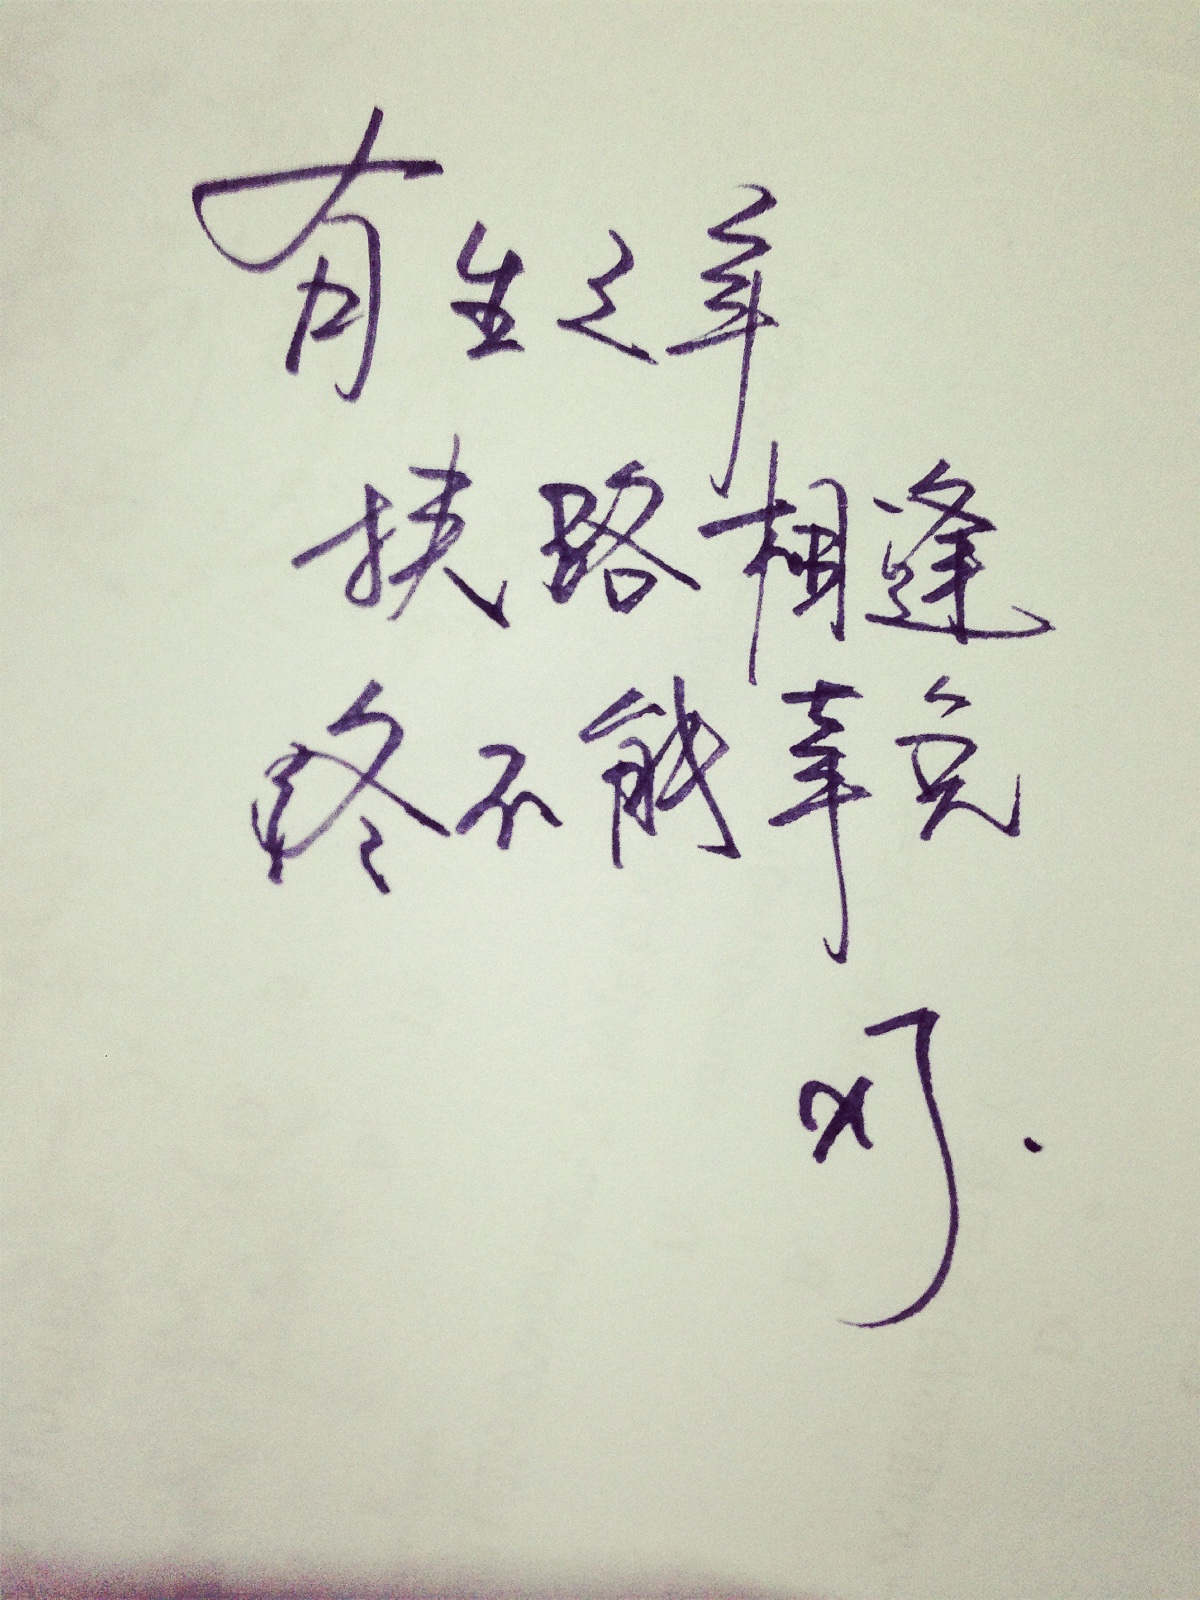 有生之年
狭路相逢
终不能幸免